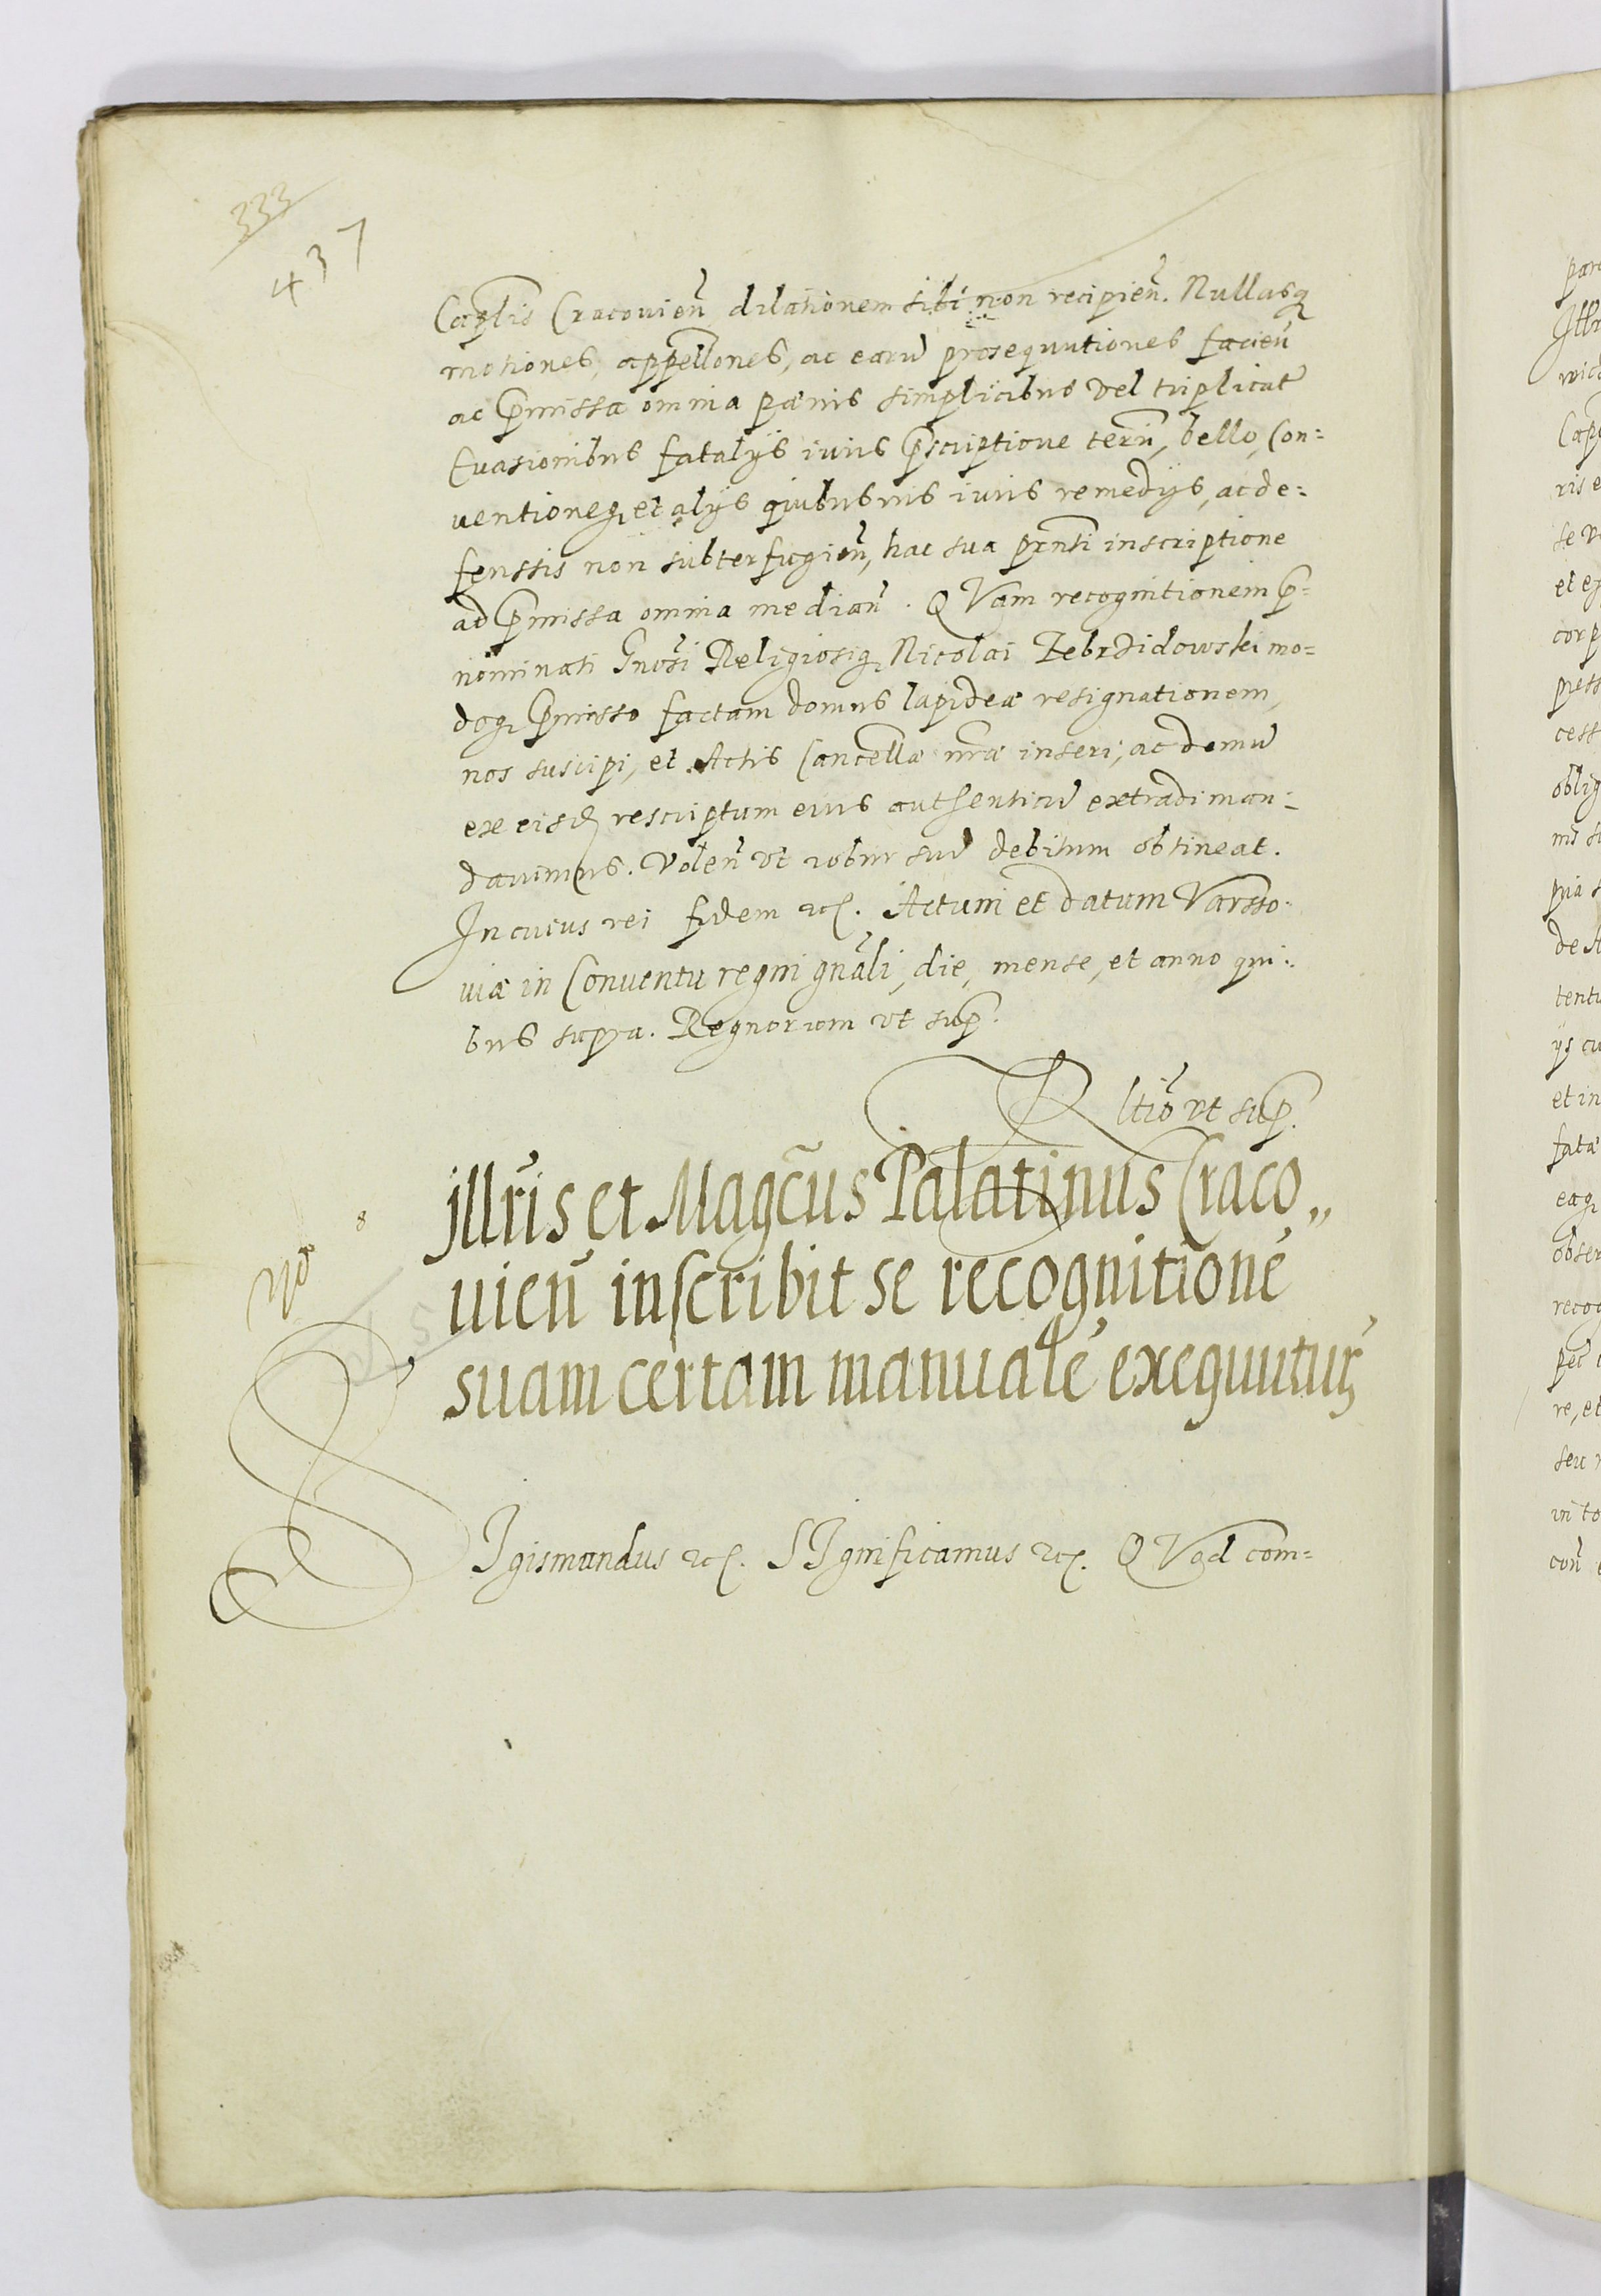 333
437
Cap̃lis Cracouień dilationem sibi non recipień. Nullasq
motiones, appellones, ac earū prosequutiones facień
ac p̃missa omnia pænis simplicibus vel triplicat̃
Euasionibus fatalijs iuris p̃scriptione terrū, bello, Con:
uentioneq, et alijs quibusuis iuris remedijs, ac de:
fenssis non subterfugień, hac sua prñti inscriptione
ad p̃missa omnia mediań. QVam recognitionem p̃:
nominati Gnosi Religiosiq, Nicolai Zebrzidowski mo:
doq, p̃misso factam domus lapideæ resignationem,
nos suscipi, et Actis Cancellæ nr̃æ inseri, ac demū
ex eisd, rescriptum eius authenticū extradi man:
dauimus. Voleń vt robur suū debitum obtineat.
In cuius rei fidem etc. Actum et datum Varsso:
uiæ in Conuentu regni gnãli, die, mense, et anno qui:
bus supra. Regnorum vt sup.
Rltio vt sup.
Illris et Magcus Palatinus Craco„
uień inscribit se recognitionē
suam certam manualē exequutur
No 8
SIgismundus etc. SIgnificamus etc. QVod com: